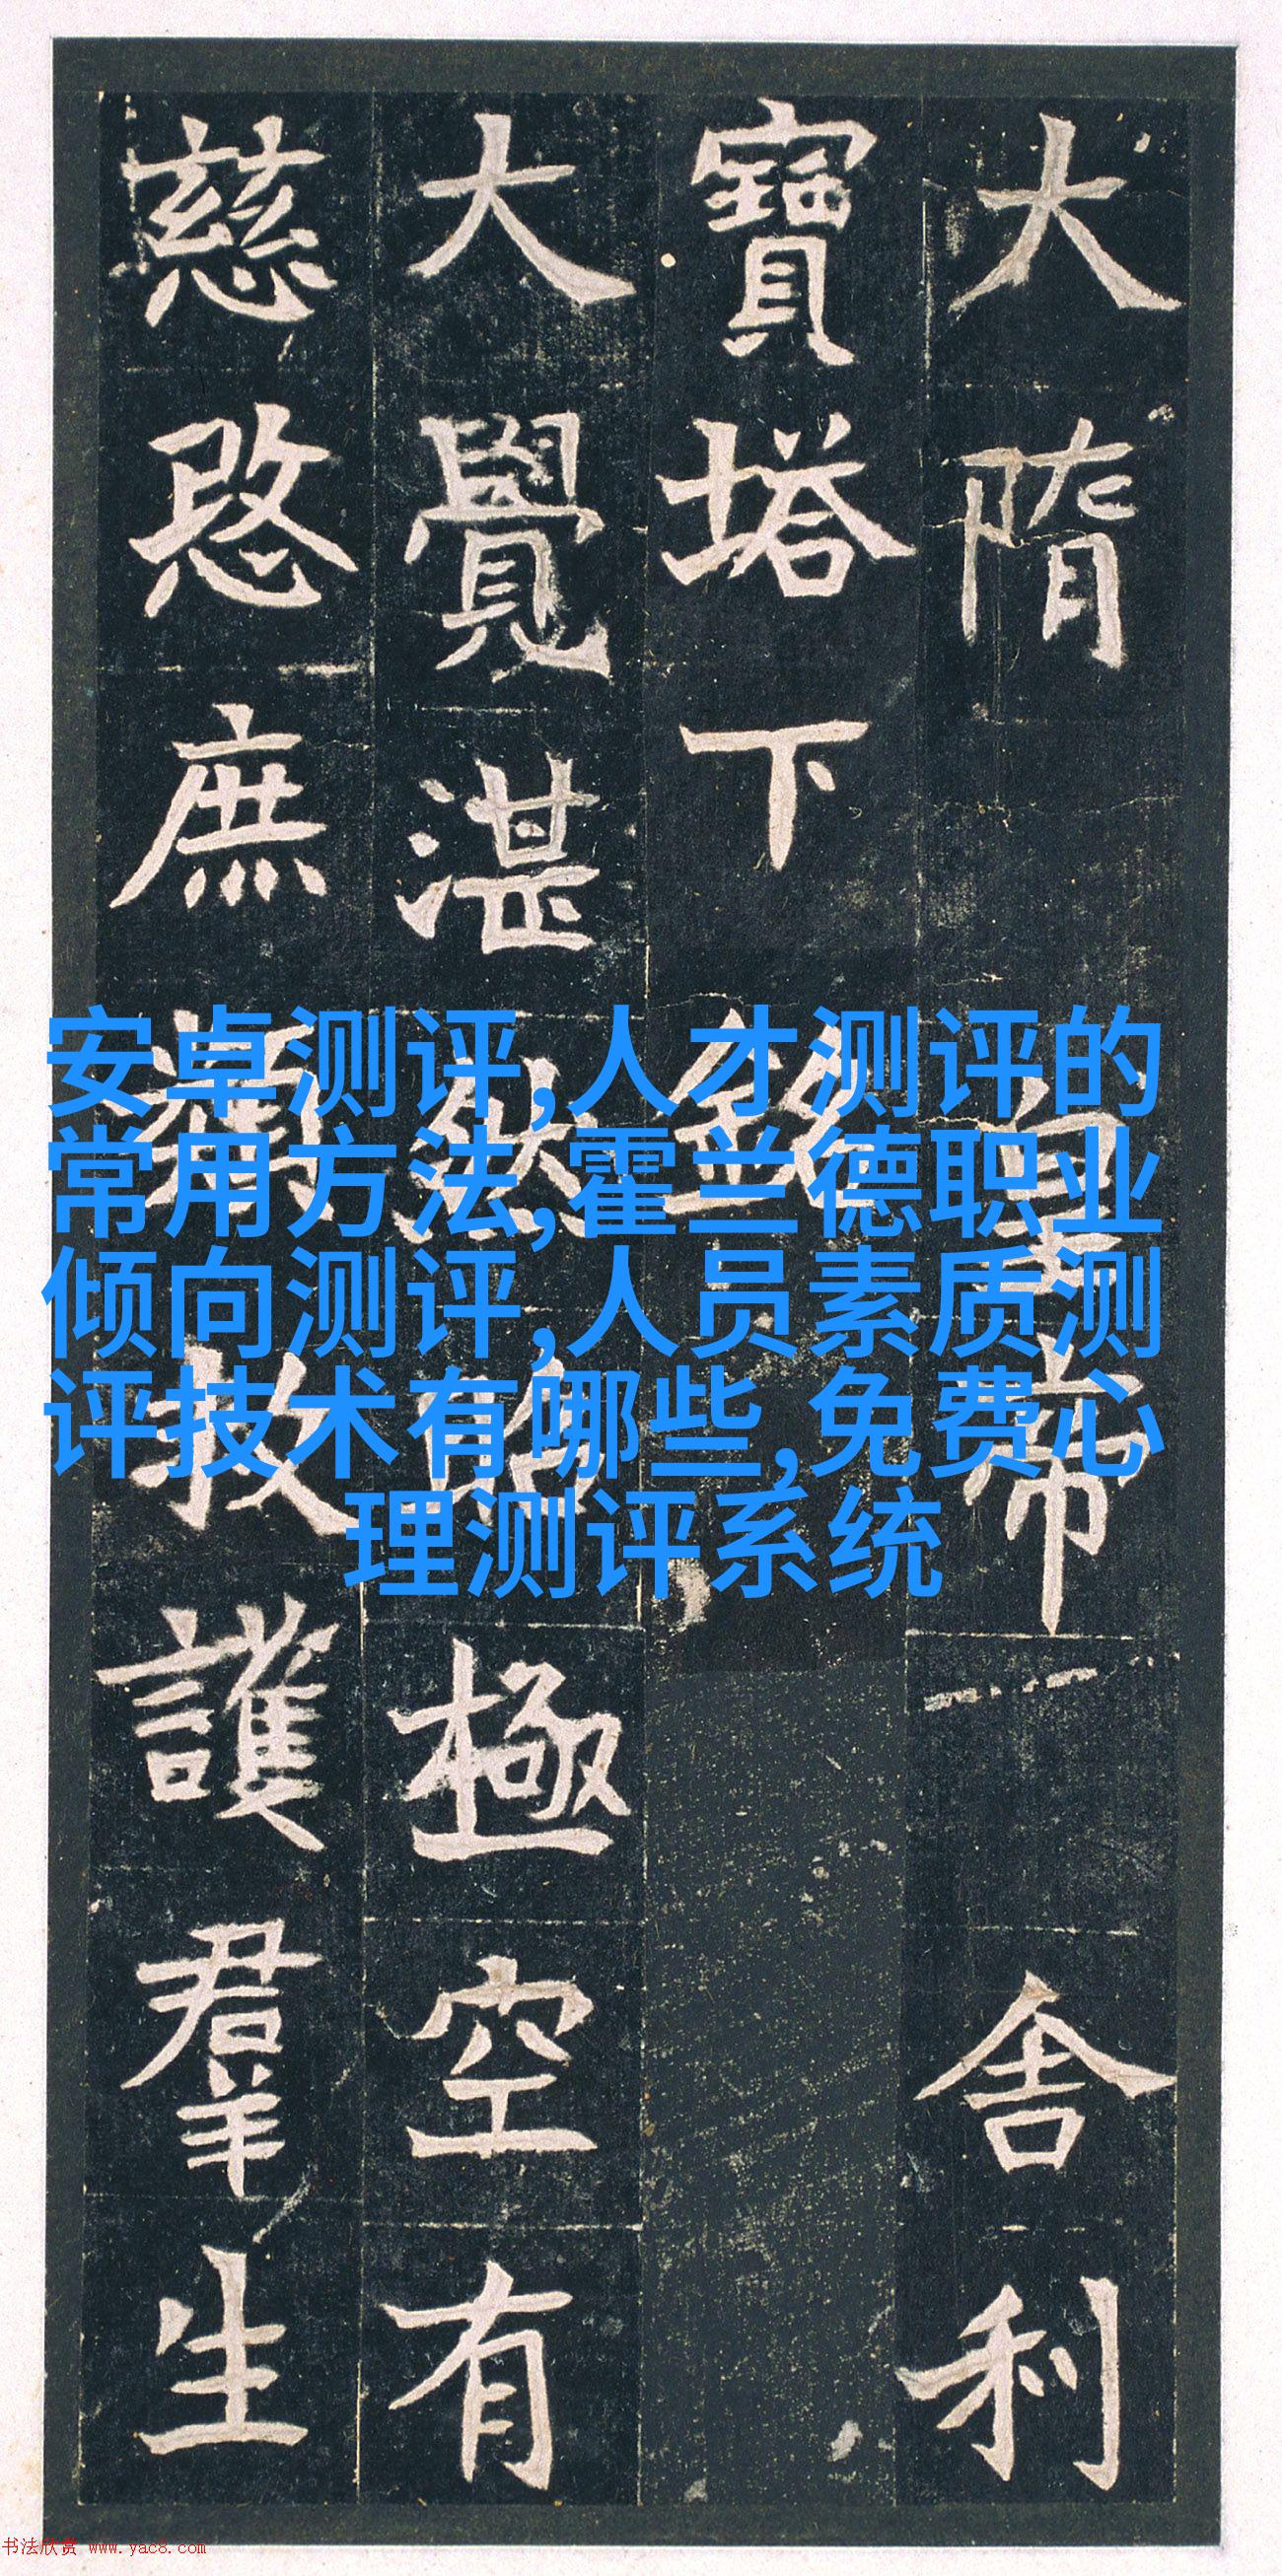 大隋皇帝舍利
寶塔下銘
大覺湛然昭極空有
慈愍庶類救護羣生
安卓测评,人才测评的
常用方法,霍兰德职业
倾向测评,人员素质测
评技术有哪些,免费心
理测评系统
书法欣赏 www.yac8.com